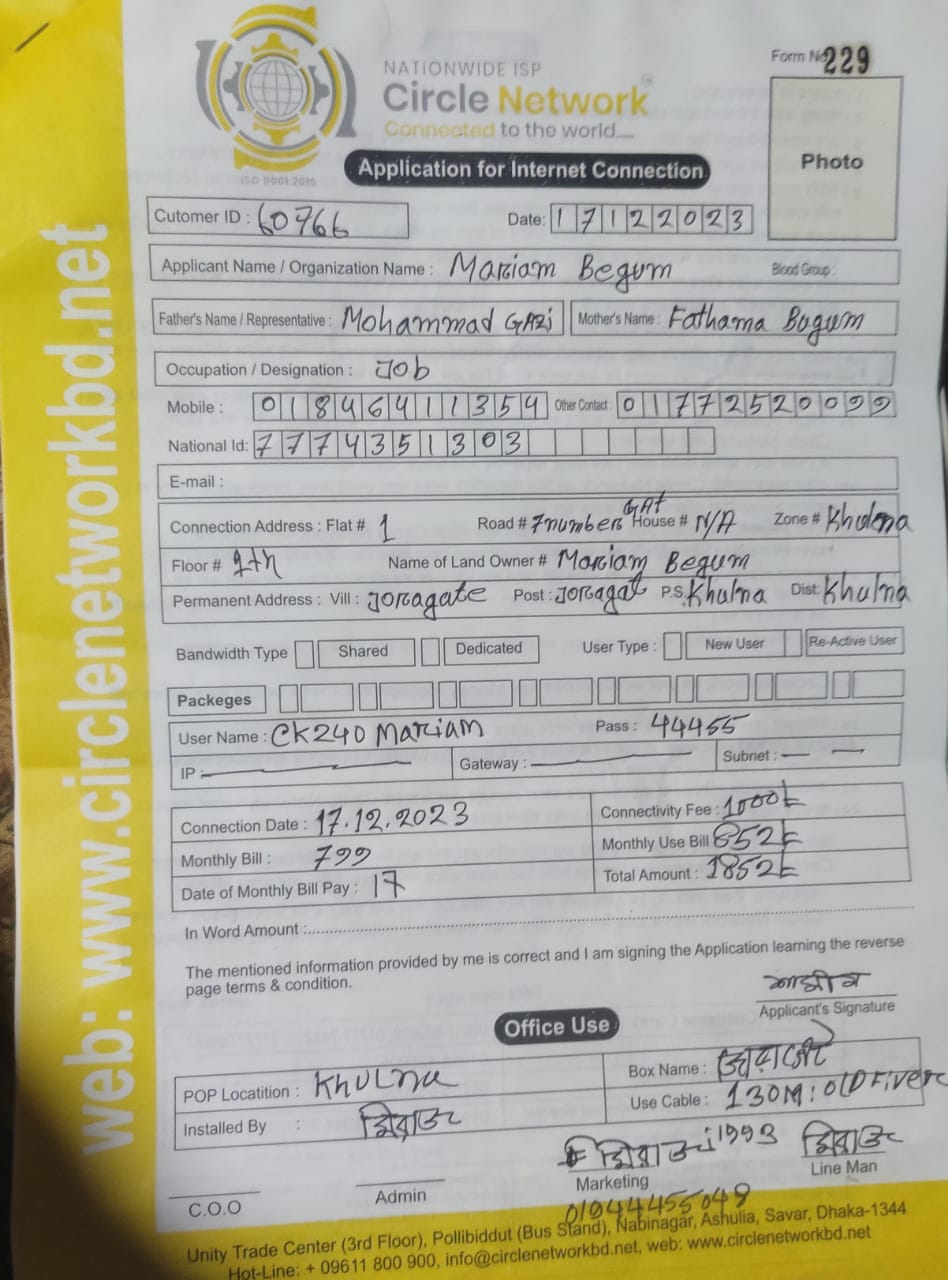 NATIONWIDE ISP
Circle Network
Connected to the world....
ISO 9001:2015
Form No 229
Photo
Application for Internet Connection
Cutomer ID : 60766 Date: 17122023
Applicant Name / Organization Name : Mariam Begum Blood Group :
Father's Name / Representative : Mohammad GAZi Mother's Name : Fathama Bagum
Occupation / Designation : Job
Mobile : 01846411354 Other Contact : 01772520099
National Id: 7774351303
E-mail :
Connection Address : Flat # 1 Road # 7number GAt House # N/A Zone # Khulna
Floor # Name of Land Owner # Mariam Begum
Permanent Address : Vill : Joragate Post : Joragat P.S. Khulna Dist: Khulna
Bandwidth Type Shared Dedicated User Type : New User Re-Active User
Packeges
User Name : CK240 Mariam Pass : 44455
IP : Gateway : Subnet :
Connection Date : 17.12.2023 Connectivity Fee : 1000
Monthly Bill : 799 Monthly Use Bill 852
Date of Monthly Bill Pay : 17 Total Amount : 1852
In Word Amount :
The mentioned information provided by me is correct and I am signing the Application learning the reverse
page terms & condition.
Applicant's Signature
Office Use
POP Locatition : Khulna Box Name :
Use Cable : 130M: old Fiver
Installed By : মিরাজ
মিরাজ 1993 মিরাজ
C.O.O Admin Marketing Line Man
01944455049
Unity Trade Center (3rd Floor), Pollibiddut (Bus Stand), Nabinagar, Ashulia, Savar, Dhaka-1344
Hot-Line: + 09611 800 900, info@circlenetworkbd.net, web: www.circlenetworkbd.net
web: www.circlenetworkbd.net